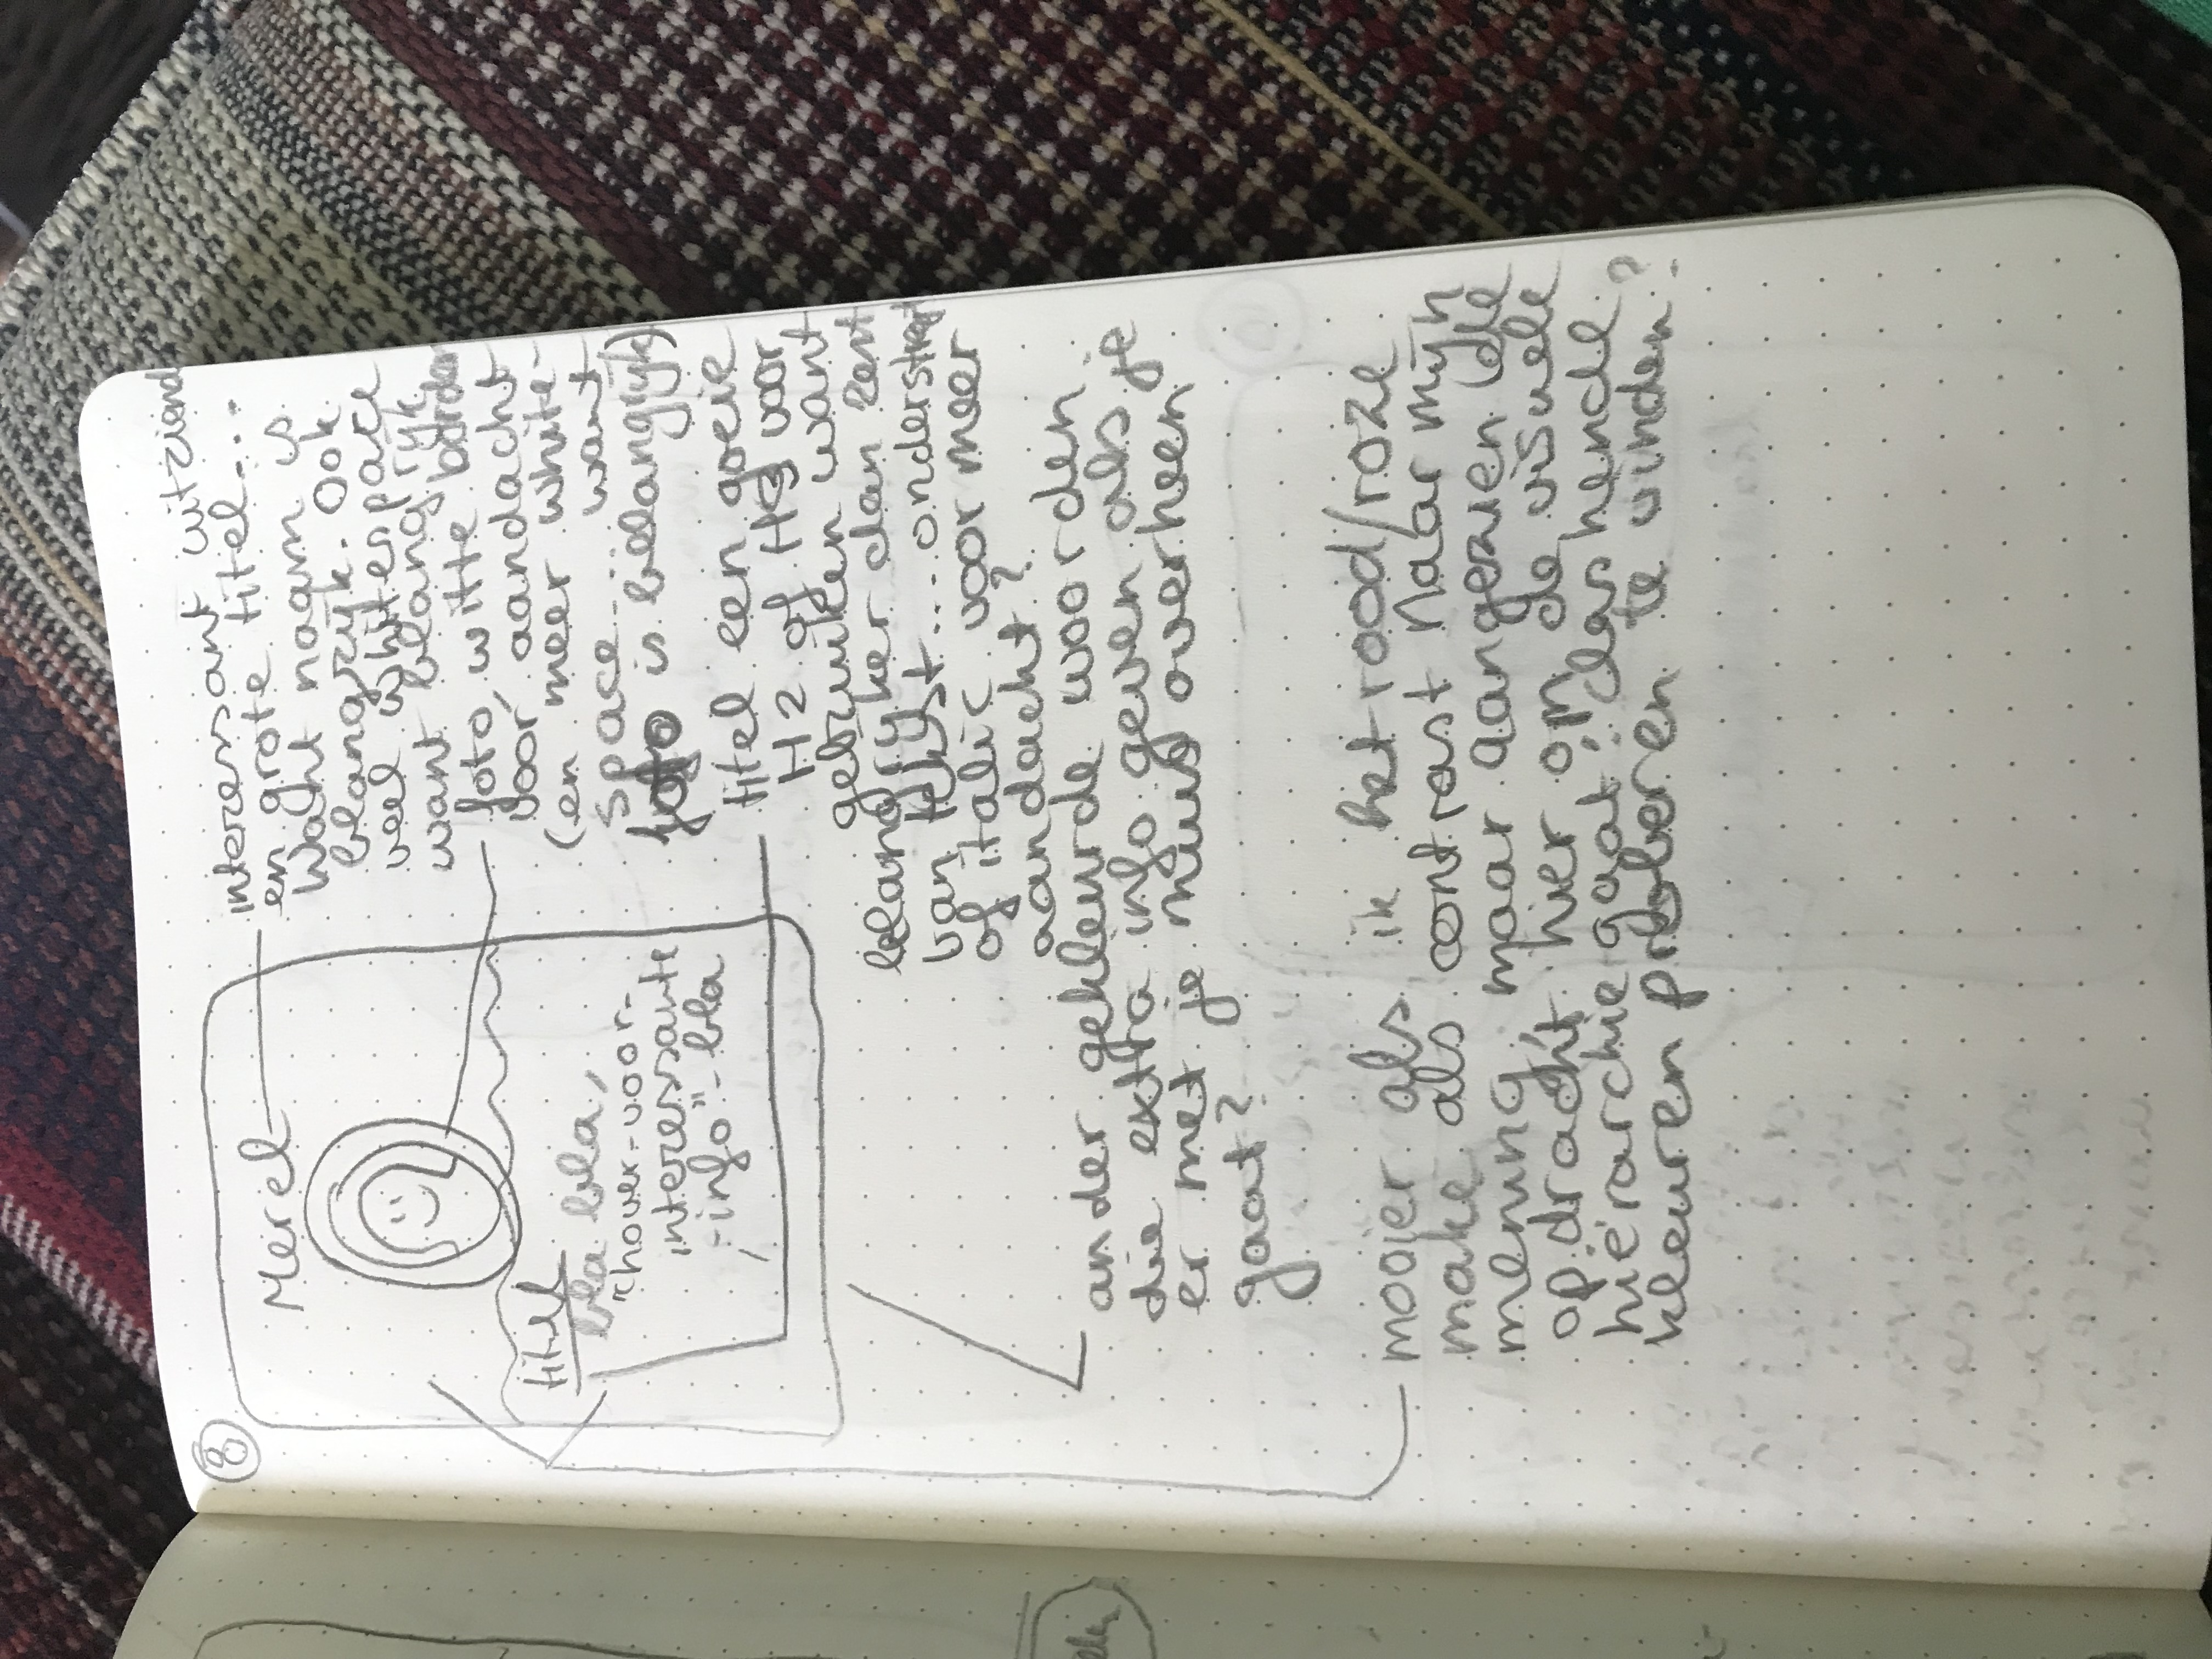 8
Merel
titel
bla bla,
"hover-voor-
interessante
-info"-bla
interessant uitziend
en grote titel...
Want naam is
blangrijk. Ook
veel whitespace
want blangrijk
foto, witte border
voor aandacht
(en meer white-
space.... want
foto is belangrijk)
titel een goeie
H2 of H3 voor
gebruiken want
blangrijker dan rest
van tekst.... onderstreept
of italic voor meer
aandacht?
ander gekleurde woorden
die extra info geven als je
er met je muis overheen
gaat?
mooier als ik het rood/roze
make als contrast naar mijn
mening, maar aangezien de
opdracht hier om de visuele
hiërarchie gaat: clashende
kleuren proberen te vinden?